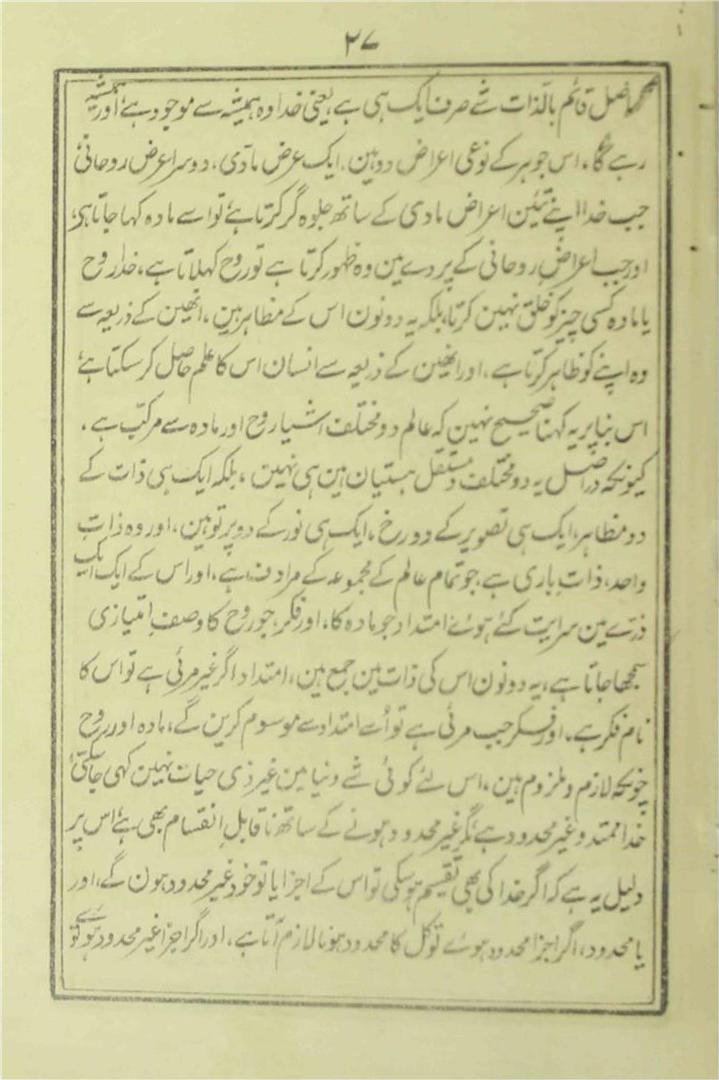 ۲۷
حاصل قائم بالذات شے صرف ایک ہی ہے، یعنی خدا وہ ہمیشہ سے موجود ہے، اور ہمیشہ
رہے گا، اس جوہر کے نوعی اعراض دو ہین، ایک عرض مادی، دوسرا عرض روحانی،
جب خدا اپنے تئین اعراض مادی کے ساتھ جلوہ گر کرتا ہے تو اسے مادہ کہا جاتا ہی،
اور جب اعراض روحانی کے پردے مین وہ ظہور کرتا ہے تو روح کہلاتا ہے، خدا روح
یا مادہ کسی چیز کو خلق نہین کرتا، بلکہ یہ دونون اس کے مظاہر ہین، انھین کے ذریعہ سے
وہ اپنے کو ظاہر کرتا ہے، اور انھین کے ذریعہ سے انسان اس کا علم حاصل کر سکتا ہے
اس بنا پر یہ کہنا صحیح نہین کہ عالم دو مختلف اشیا روح اور مادہ سے مرکب ہے،
کیونکہ در اصل یہ دو مختلف و مستقل ہستیان ہین ہی نہین، بلکہ ایک ہی ذات کے
دو مظاہر، ایک ہی تصویر کے دو رخ، ایک ہی نور کے دو پرتو ہین، اور وہ ذات
واحد، ذات باری ہے، جو تمام عالم کے مجموعہ کے مرادف ہے، اور اس کے ایک ایک
ذرے مین سرایت کئے ہوئے امتداد جو مادہ کا، اور فکر، جو روح کا وصف امتیازی
سمجھا جاتا ہے، یہ دونون اس کی ذات مین جمع ہین، امتداد اگر غیر مرئی ہے تو اس کا
نام فکر ہے، اور فکر جب مرئی ہے تو اُسے امتداد سے موسوم کرین گے، مادہ اور روح
چونکہ لازم و ملزوم ہین، اس لئے کوئی شے دنیا مین غیر ذی حیات نہین کہی جا سکتی،
خدا ممتد و غیر محدود ہے، مگر غیر محدود ہونے کے ساتھ ناقابل انقسام بھی ہے، اس پر
دلیل یہ ہے کہ اگر خدا کی بھی تقسیم ہو سکی تو اس کے اجزا یا تو خود غیر محدود ہون گے، اور
یا محدود، اگر اجزا محدود ہوئے تو کل کا محدود ہونا لازم آتا ہے، اور اگر اجزا غیر محدود ہوے تو